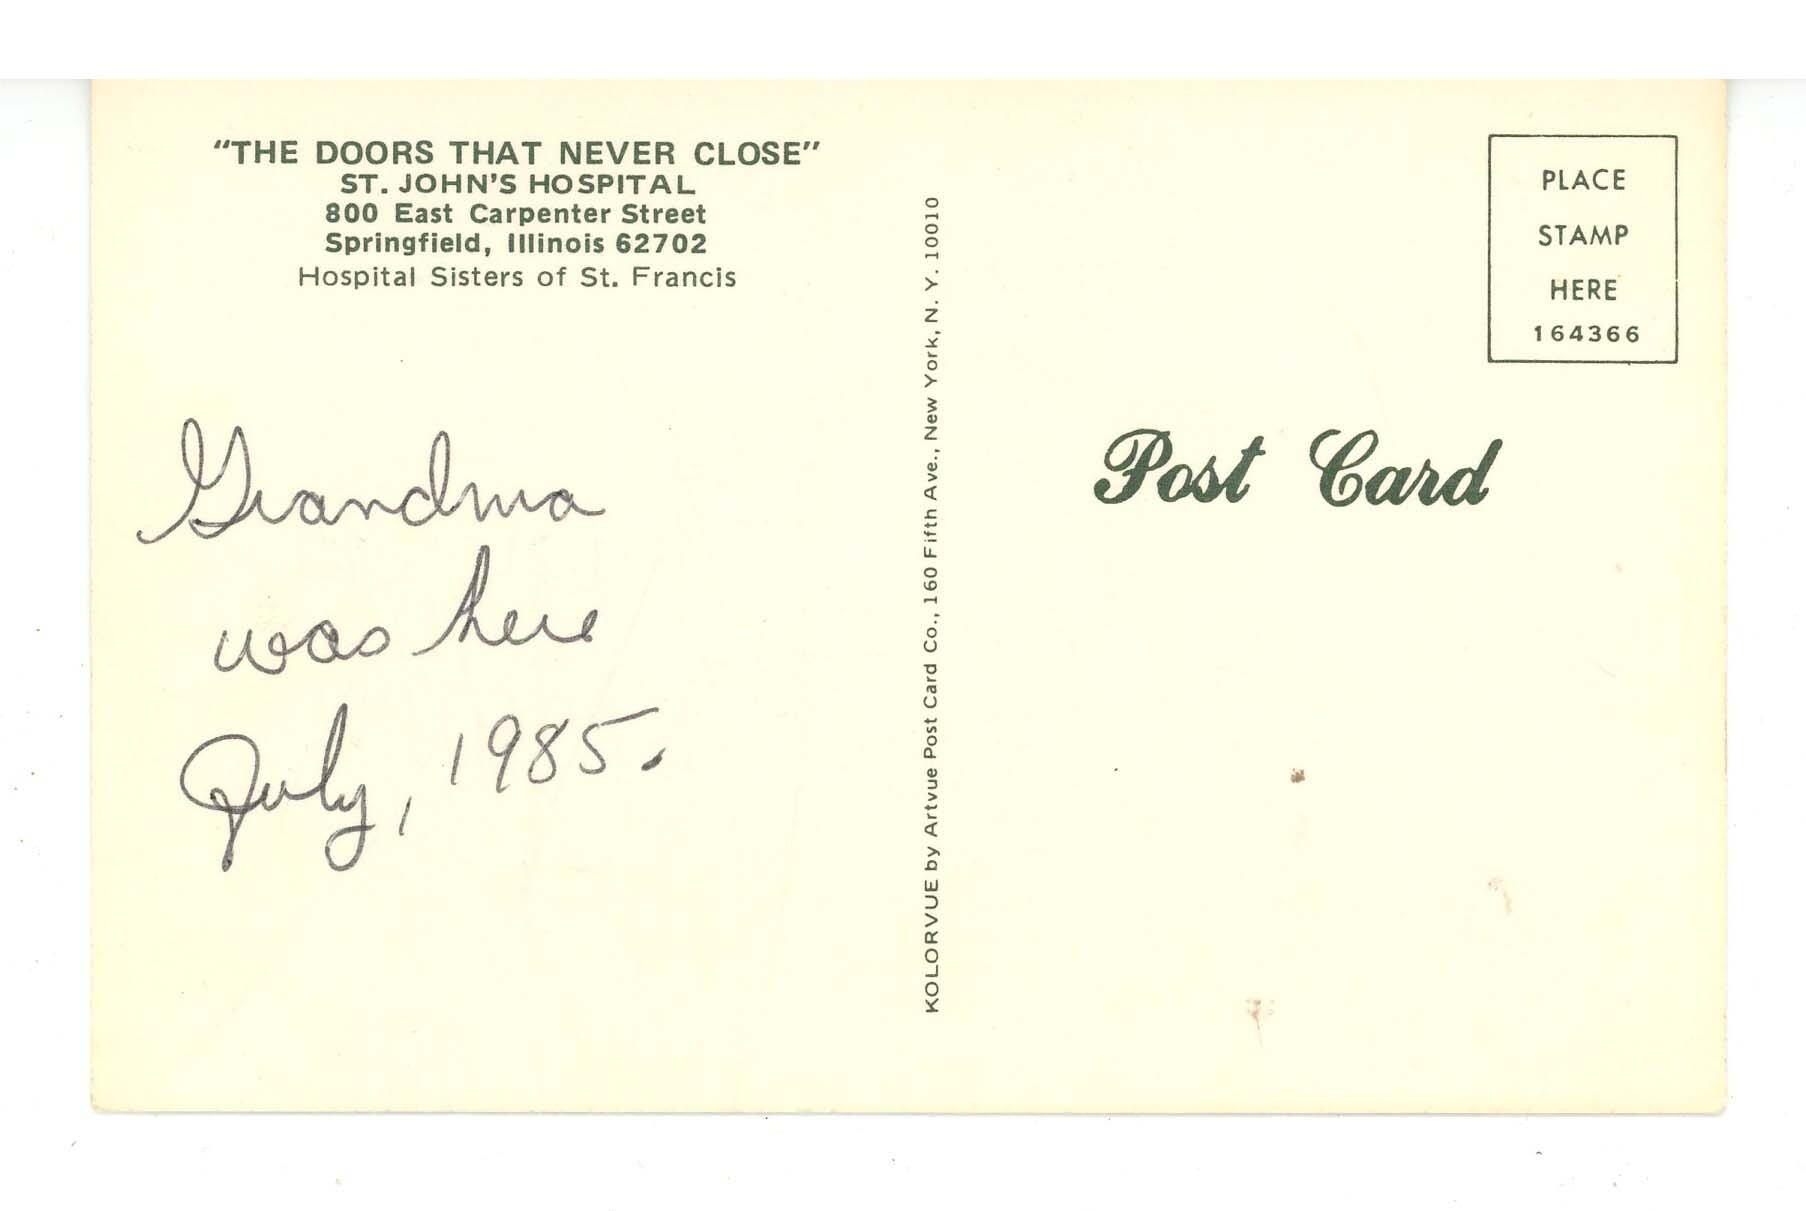 "THE DOORS THAT NEVER CLOSE"
ST. JOHN'S HOSPITAL
800 East Carpenter Street
Springfield, Illinois 62702
Hospital Sisters of St. Francis
Grandma
was here
July, 1985.
KOLORVUE by Artvue Post Card Co., 160 Fifth Ave., New York, N. Y. 10010
PLACE
STAMP
HERE
164366
Post Card